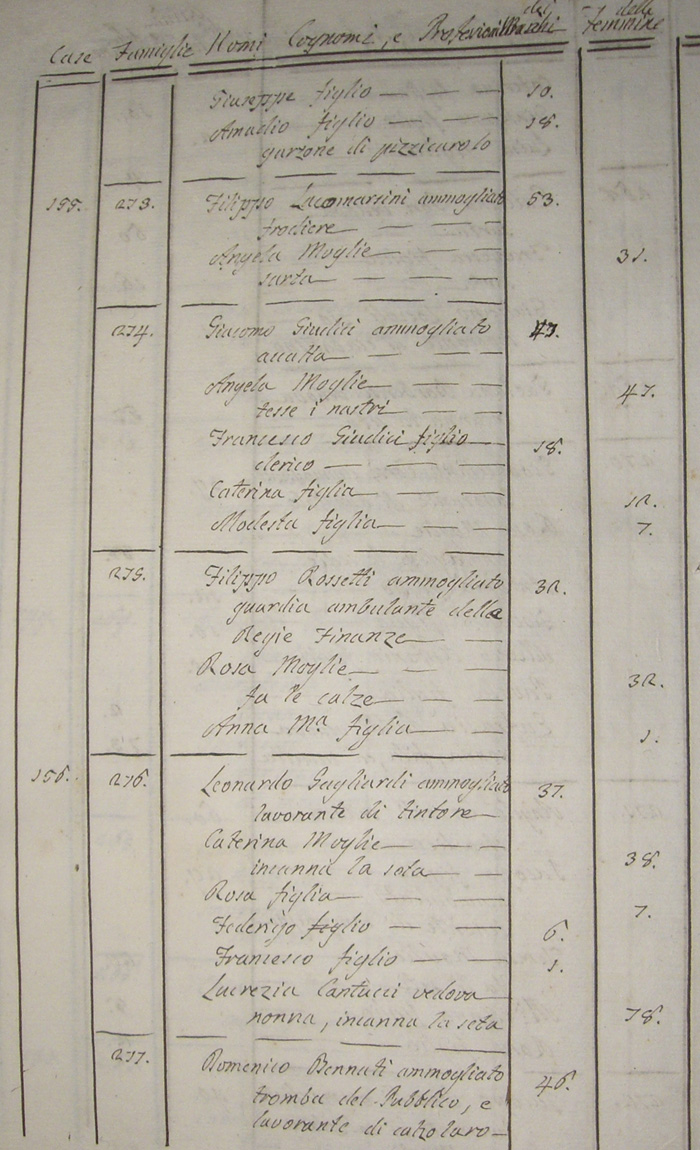 dei della
Case Famiglie Nomi Cognomi, e Professioni Maschi Femmine
Giuseppe figlio — — — 10.
Amadio figlio — — — 18.
garzone di pizzicarolo
155. 273. Filippo Lacomarsini ammogliato 53.
Angela Moglie — — — 31.
sarta — — —
274. Giacomo Giudici ammogliato 47.
accatta — — —
Angela Moglie — — — 47.
tesse i nastri — —
Francesco Giudici figlio — 18.
clerico — — — —
Caterina figlia — — — 12.
Modesta figlia — — — 7.
275. Filippo Rossetti ammogliato 32.
guardia ambulante della
Regie Finanze — —
Rosa Moglie — — — 32.
fa le calze — — —
Anna Mª figlia — — 1.
156. 276. Leonardo Gagliardi ammogliato 37.
lavorante di tintore —
Caterina Moglie — — 38.
incanna la seta — —
Rosa figlia — — — 7.
Federigo figlio — — 6.
Francesco figlio — — 1.
Lucrezia Cantucci vedova
nonna, incanna la seta 78.
277. Domenico Bennati ammogliato 46.
tromba del Pubblico, e
lavorante di calzolaro —